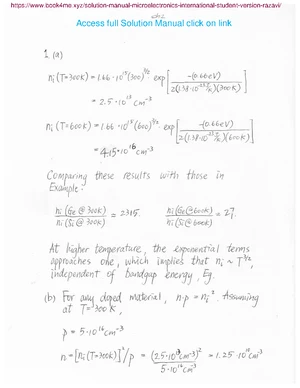 https://www.book4me.xyz/solution-manual-microelectronics-international-student-version-razavi/
Access full Solution Manual click on link
1 (a)
ni (T=300K) = 1.66 · 10^15 (300)^3/2 exp [ -(0.66eV) / 2(1.38·10^-23 J/K)(300K) ]
= 2.5 · 10^13 cm^-3
ni (T=600K) = 1.66 · 10^15 (600)^3/2 exp [ -(0.66eV) / 2(1.38·10^-23 J/K)(600K) ]
= 4.15·10^16 cm^-3
Comparing these results with those in
Example:
ni (Ge @ 300K) / ni (Si @ 300K) = 2315. ni (Ge @ 600K) / ni (Si @ 600K) = 27.
At higher temperature, the exponential terms
approaches one, which implies that ni ~ T^3/2,
independent of bandgap energy, Eg.
(b) For any doped material, n·p = ni^2. Assuming
at T=300K,
p = 5·10^16 cm^-3
n = [ni (T=300K)]^2 / p = (2.5·10^13 cm^-3)^2 / 5·10^16 cm^-3 = 1.25·10^10 cm^-3